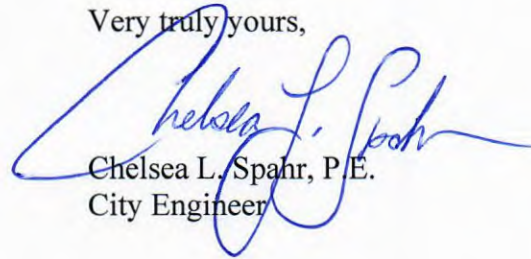 Very truly yours,
Chelsea L. Spahr
Chelsea L. Spahr, P.E.
City Engineer